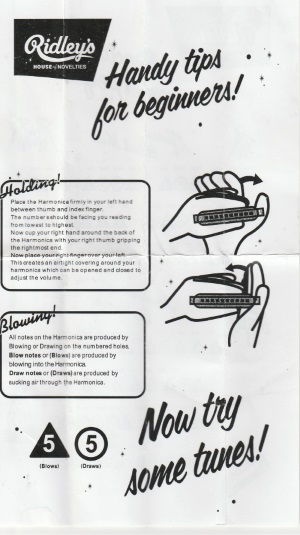 Ridley's
HOUSE of NOVELTIES
Handy tips
for beginners!
Holding!
Place the Harmonica firmly in your left hand
between thumb and index finger.
The numbers should be facing you reading
from lowest to highest.
Now cup your right hand around the back of
the Harmonica with your right thumb gripping
the right most end.
Now place your right finger over your left.
This creates an airtight covering around your
harmonica which can be opened and closed to
adjust the volume.
Blowing!
All notes on the Harmonica are produced by
Blowing or Drawing on the numbered holes.
Blow notes or (Blows) are produced by
blowing into the Harmonica.
Draw notes or (Draws) are produced by
sucking air through the Harmonica.
5 5
(Blows) (Draws)
Now try
some tunes!